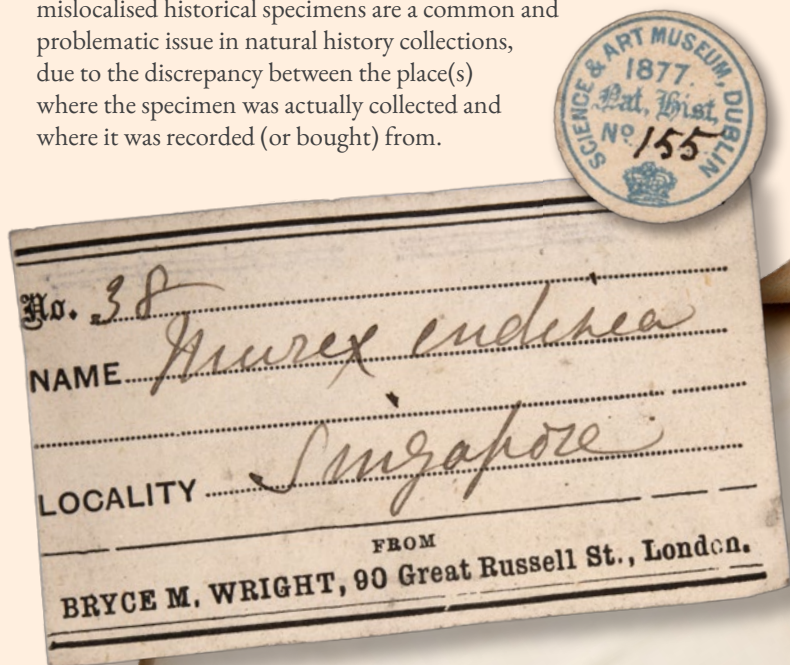 mislocalised historical specimens are a common and
problematic issue in natural history collections,
due to the discrepancy between the place(s)
where the specimen was actually collected and
where it was recorded (or bought) from.
SCIENCE & ART MUSEUM, DUBLIN
1877.
Nat. Hist.
No 155
No. 38
NAME Murex endivea
LOCALITY Singapore
FROM
BRYCE M. WRIGHT, 90 Great Russell St., London.